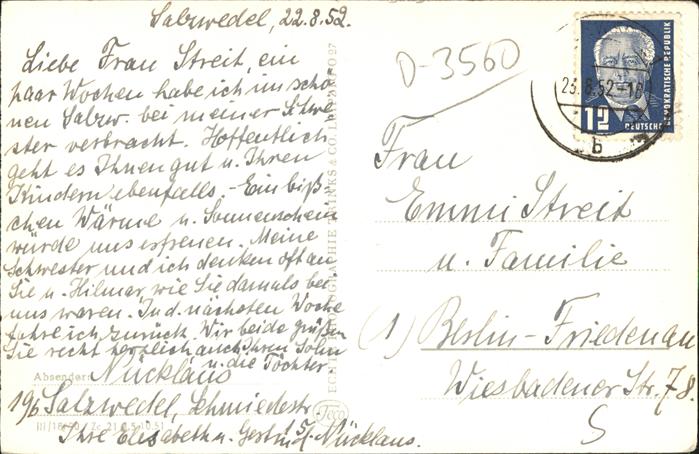 Salzwedel, 22.8.52.
Liebe Frau Streit, ein
paar Wochen habe ich im schö-
nen Salzw. bei meiner Schwe-
ster verbracht. Hoffentlich
geht es Ihnen gut u. Ihren
Kindern ebenfalls. - Ein biß-
chen Wärme u. Sonnenschein
würde uns erfreuen. Meine
Schwester und ich denken oft an
Sie u. Hilmar wie Sie damals bei
uns waren. In d. nächsten Woche
fahre ich zurück. Wir beide grüßen
Sie recht herzlich auch Ihren Sohn
u. die Töchter
Absender:
Nücklaus
19b Salzwedel, Schmiedestr.
Ihre Elisabeth u. Gertrud Nücklaus.
III/18/
ECHTE PHOTOGRAPHIE TRINKS & CO.
D-3560
23.8.52-18
b
12
DEUTSCHE DEMOKRATISCHE REPUBLIK
Frau
Emmi Streit
u. Familie
(1) Berlin-Friedenau
Wiesbadener Str. 78.